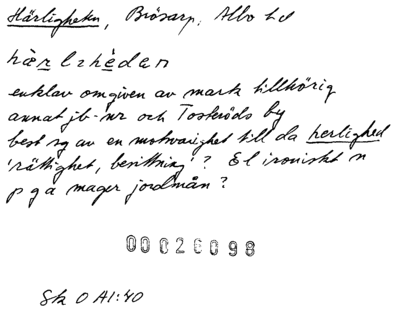 Härligheten, Brösarp, Albo hd
hærlzhèdan
enklav omgiven av mark tillhörig
annat jb-nr och Tosteröds by
best sg av en motsvarighet till da herlighed
'rättighet, besittning'? El ironiskt n
p g a mager jordmån?
00026098
Sk O A1:40